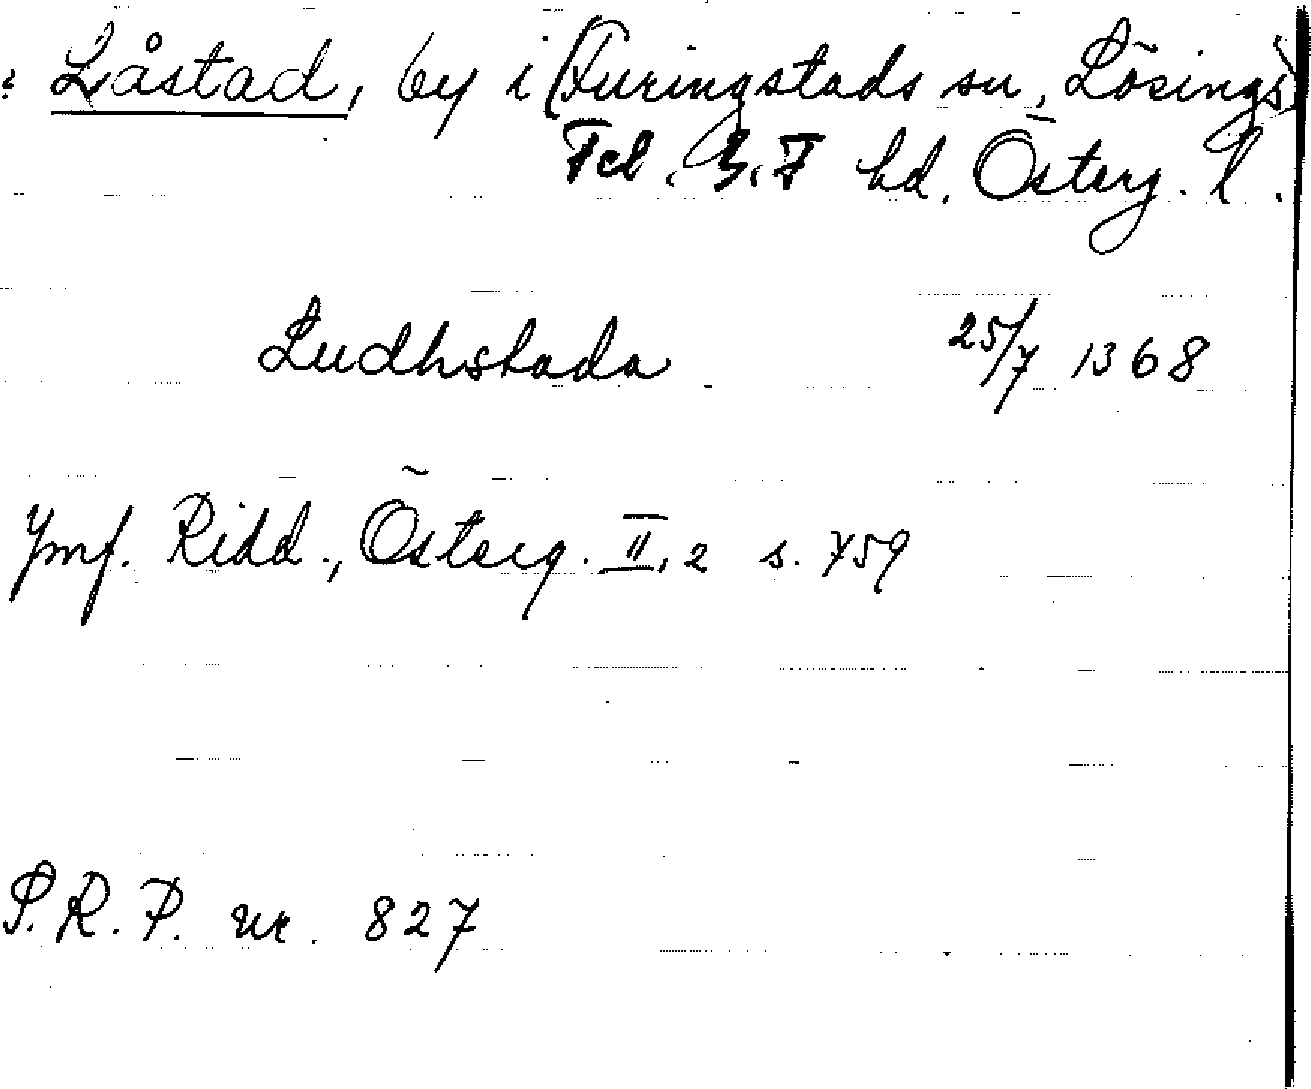 : Låstad, by i (Furingstads sn, Lösings)
Tcl. B.F hd. Österg. l.
Ludhstada 25/7 1368
Jmf. Ridd., Österg. II, 2 s. 759
P.R.P. nr. 827